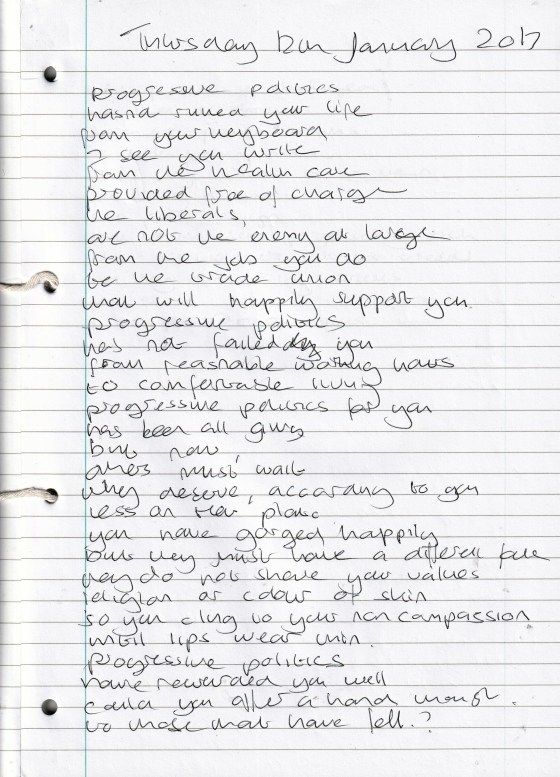 Thursday 12th January 2017
progressive politics
hasnt ruined your life
from your keyboard
I see you write
from the health care
provided free of charge
the liberals,
are not the enemy at large
from the jobs you do
to the trade union
that will happily support you.
progressive politics
has not failed you
from reasonable working hours
to comfortable living
progressive politics for you
has been all giving
but now,
others must wait
they deserve, according to you
less on their plate
you have gorged happily
but they must have a different fate
they do not share your values
religion or colour of skin
so you cling to your non compassion
until lips wear thin.
progressive politics
have rewarded you well
could you offer a hand though.
to those that have fell.?